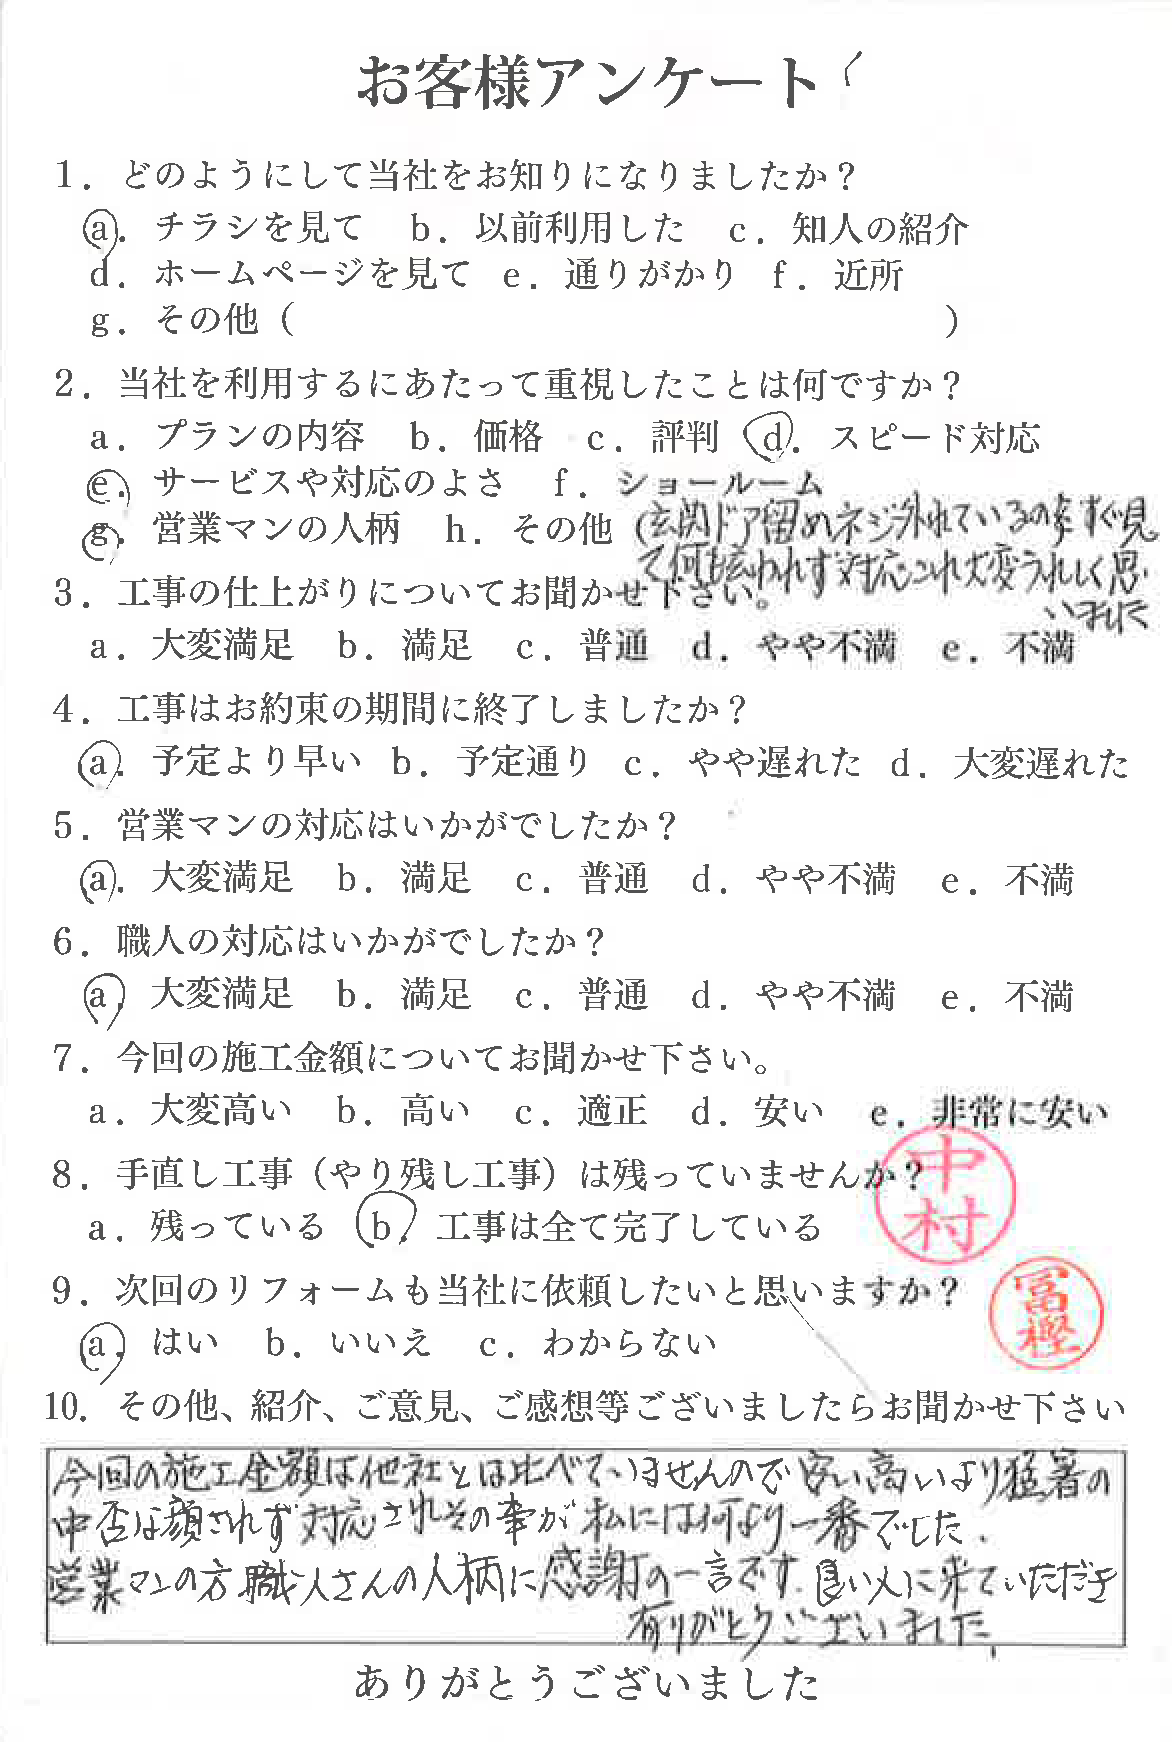 お客様アンケート
1．どのようにして当社をお知りになりましたか？
a．チラシを見て　b．以前利用した　c．知人の紹介
d．ホームページを見て　e．通りがかり　f．近所
g．その他（　　　　　　　　　　　　　　　　　　）
2．当社を利用するにあたって重視したことは何ですか？
a．プランの内容　b．価格　c．評判　d．スピード対応
e．サービスや対応のよさ　f．ショールーム
g．営業マンの人柄　h．その他（玄関ドア留めネジ外れているの まずぐ見
て何も云われず対応これ大変うれしく思
いました
3．工事の仕上がりについてお聞かせ下さい。
a．大変満足　b．満足　c．普通　d．やや不満　e．不満
4．工事はお約束の期間に終了しましたか？
a．予定より早い　b．予定通り　c．やや遅れた　d．大変遅れた
5．営業マンの対応はいかがでしたか？
a．大変満足　b．満足　c．普通　d．やや不満　e．不満
6．職人の対応はいかがでしたか？
a．大変満足　b．満足　c．普通　d．やや不満　e．不満
7．今回の施工金額についてお聞かせ下さい。
a．大変高い　b．高い　c．適正　d．安い　e．非常に安い
8．手直し工事（やり残し工事）は残っていませんか？
a．残っている　b　工事は全て完了している
中村
9．次回のリフォームも当社に依頼したいと思いますか？
冨樫
a．はい　b．いいえ　c．わからない
10．その他、紹介、ご意見、ご感想等ございましたらお聞かせ下さい
今回の施工金額は他社とは比べていませんので安い高いより猛暑の
中否な顔されず対応されその事が私には何より一番でした．
営業マンの方職人さんの人柄に感謝の一言です．良い人に来ていただき
有りがとうございました，
ありがとうございました